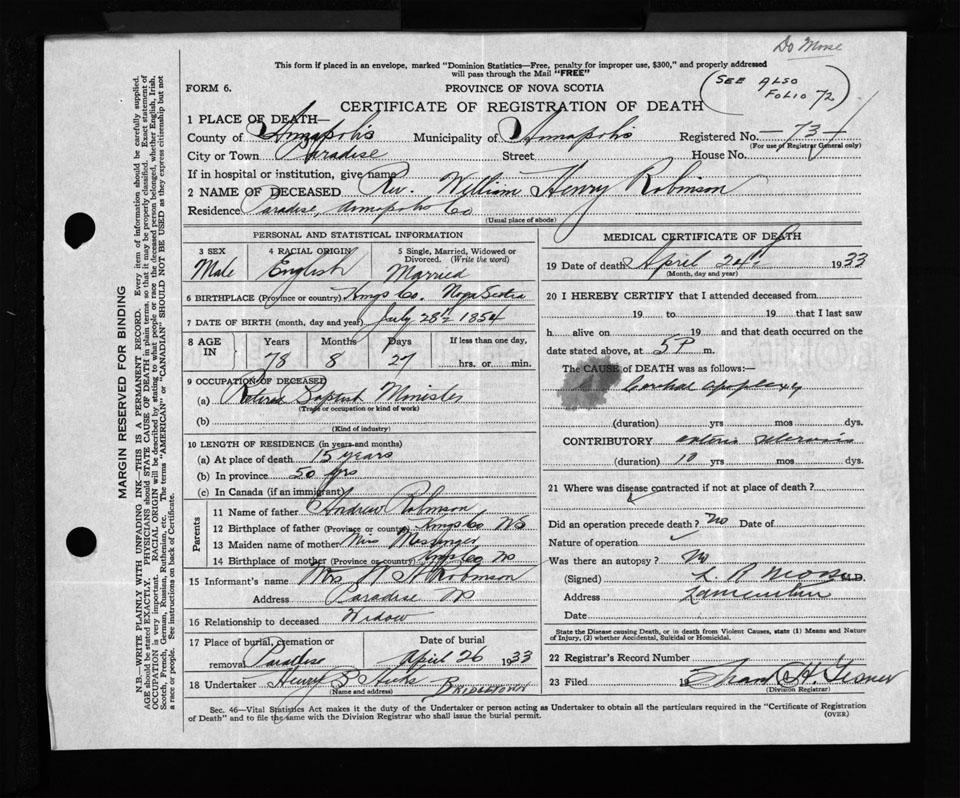 Do Morse
This form if placed in an envelope, marked "Dominion Statistics—Free, penalty for improper use, $300," and properly addressed
will pass through the Mail "FREE"
(SEE ALSO
FOLIO 72)
FORM 6.
PROVINCE OF NOVA SCOTIA
CERTIFICATE OF REGISTRATION OF DEATH
1 PLACE OF DEATH—
County of Annapolis Municipality of Annapolis Registered No. —73—
(For use of Registrar General only)
City or Town Paradise Street House No.
If in hospital or institution, give name
2 NAME OF DECEASED Rev. William Henry Robinson
Residence Paradise, Annapolis Co
(Usual place of abode)
PERSONAL AND STATISTICAL INFORMATION
3 SEX Male
4 RACIAL ORIGIN English
5 Single, Married, Widowed or Divorced. (Write the word) Married
6 BIRTHPLACE (Province or country) Kings Co. Nova Scotia
7 DATE OF BIRTH (month, day and year) July 28th 1854
8 AGE IN Years 78 Months 8 Days 27 If less than one day, hrs. or min.
9 OCCUPATION OF DECEASED
(a) Retired Baptist Minister
(Trade or occupation or kind of work)
(b)
(Kind of industry)
10 LENGTH OF RESIDENCE (in years and months)
(a) At place of death 15 years
(b) In province 50 yrs
(c) In Canada (if an immigrant)
Parents
11 Name of father Andrew Robinson
12 Birthplace of father (Province or country) Kings Co NS
13 Maiden name of mother Miss Messenger
14 Birthplace of mother (Province or country) Kings Co NS
15 Informant's name Mrs W H Robinson
Address Paradise NS
16 Relationship to deceased Widow
17 Place of burial, cremation or removal Paradise Date of burial April 26 1933
18 Undertaker Henry B Hicks Bridgetown
(Name and address)
MEDICAL CERTIFICATE OF DEATH
19 Date of death April 24th 1933
(Month, day and year)
20 I HEREBY CERTIFY that I attended deceased from
19 to 19 that I last saw
h alive on 19 and that death occurred on the
date stated above, at 5 P m.
The CAUSE of DEATH was as follows:—
Cerebral apoplexy
(duration) yrs mos dys.
CONTRIBUTORY
(duration) 10 yrs mos dys.
21 Where was disease contracted if not at place of death?
Did an operation precede death? No Date of
Nature of operation
Was there an autopsy? No
(Signed) L R Morse M.D.
Address Lawrencetown
Date
State the Disease causing Death, or in death from Violent Causes, state (1) Means and Nature
of Injury, (2) whether Accidental, Suicidal or Homicidal.
22 Registrar's Record Number
23 Filed 19
(Division Registrar)
Sec. 46—Vital Statistics Act makes it the duty of the Undertaker or person acting as Undertaker to obtain all the particulars required in the "Certificate of Registration
of Death" and to file the same with the Division Registrar who shall issue the burial permit.
(OVER)
MARGIN RESERVED FOR BINDING
N.B.—WRITE PLAINLY WITH UNFADING INK—THIS IS A PERMANENT RECORD. Every item of information should be carefully supplied.
AGE should be stated EXACTLY. PHYSICIANS should STATE CAUSE OF DEATH in plain terms, so that it may be properly classified. Exact statement of
OCCUPATION is very important. RACIAL ORIGIN will be described by stating to what people or race the deceased person belonged, whether English, Irish,
Scotch, French, German, Russian, Ruthenian, etc. The terms "AMERICAN" or "CANADIAN" SHOULD NOT BE USED as they express citizenship but not
a race or people. See instructions on back of Certificate.